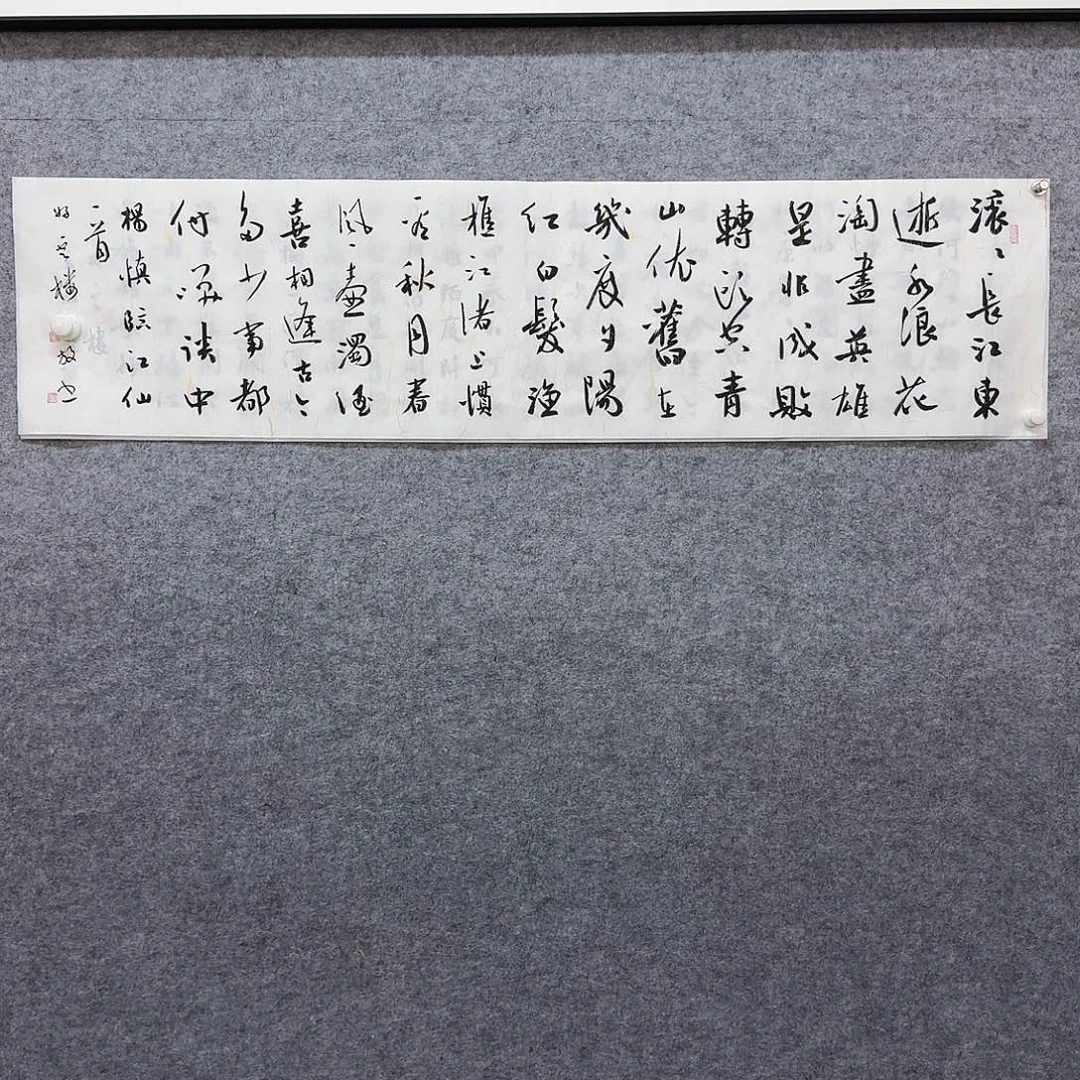 滚〻長江東
逝水浪花
淘盡英雄
是非成敗
轉頭空青
山依舊在
幾度夕陽
红白髮漁
樵江渚上慣
看秋月春
風一壺濁酒
喜相逢古今
多少事都
付笑談中
楊慎臨江仙
一首
樓